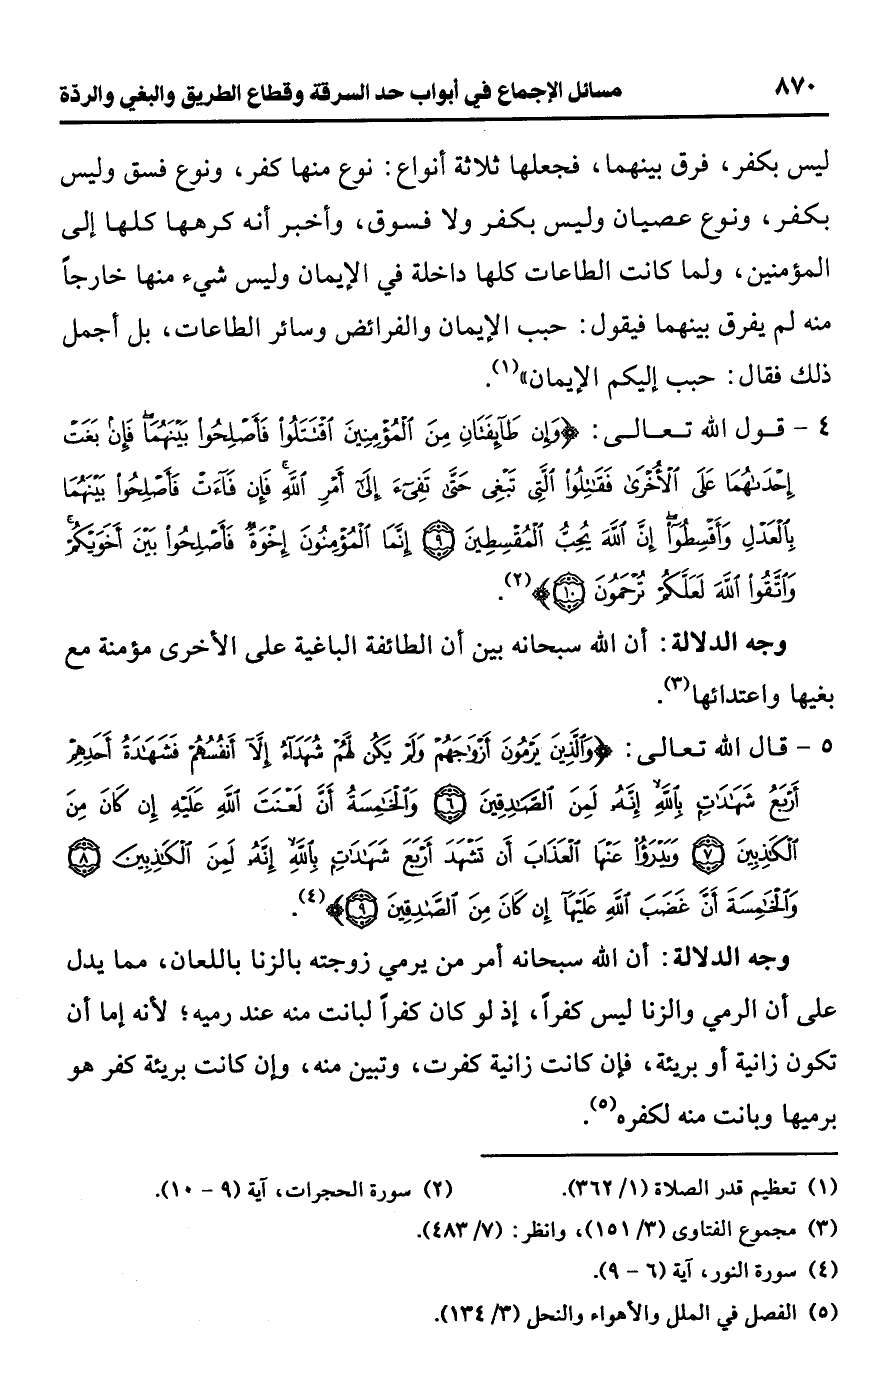 ٨٧٠ مسائل الإجماع في أبواب حد السرقة وقطاع الطريق والبغي والردّة
ليس بكفر، فرق بينهما، فجعلها ثلاثة أنواع: نوع منها كفر، ونوع فسق وليس
بكفر، ونوع عصيان وليس بكفر ولا فسوق، وأخبر أنه كرهها كلها إلى
المؤمنين، ولما كانت الطاعات كلها داخلة في الإيمان وليس شيء منها خارجاً
منه لم يفرق بينهما فيقول: حبب الإيمان والفرائض وسائر الطاعات، بل أجمل
ذلك فقال: حبب إليكم الإيمان»(١).
٤ - قول الله تعالى: ﴿وَإِن طَآئِفَتَانِ مِنَ ٱلْمُؤْمِنِينَ ٱقْتَتَلُوا۟ فَأَصْلِحُوا۟ بَيْنَهُمَا ۖ فَإِنۢ بَغَتْ
إِحْدَىٰهُمَا عَلَى ٱلْأُخْرَىٰ فَقَـٰتِلُوا۟ ٱلَّتِى تَبْغِى حَتَّىٰ تَفِىٓءَ إِلَىٰٓ أَمْرِ ٱللَّهِ ۚ فَإِن فَآءَتْ فَأَصْلِحُوا۟ بَيْنَهُمَا
بِٱلْعَدْلِ وَأَقْسِطُوٓا۟ ۖ إِنَّ ٱللَّهَ يُحِبُّ ٱلْمُقْسِطِينَ ۝٩ إِنَّمَا ٱلْمُؤْمِنُونَ إِخْوَةٌ فَأَصْلِحُوا۟ بَيْنَ أَخَوَيْكُمْ ۚ
وَٱتَّقُوا۟ ٱللَّهَ لَعَلَّكُمْ تُرْحَمُونَ ۝١٠﴾(٢).
وجه الدلالة: أن الله سبحانه بين أن الطائفة الباغية على الأخرى مؤمنة مع
بغيها واعتدائها(٣).
٥ - قال الله تعالى: ﴿وَٱلَّذِينَ يَرْمُونَ أَزْوَٰجَهُمْ وَلَمْ يَكُن لَّهُمْ شُهَدَآءُ إِلَّآ أَنفُسُهُمْ فَشَهَـٰدَةُ أَحَدِهِمْ
أَرْبَعُ شَهَـٰدَٰتٍۭ بِٱللَّهِ ۙ إِنَّهُۥ لَمِنَ ٱلصَّـٰدِقِينَ ۝٦ وَٱلْخَـٰمِسَةُ أَنَّ لَعْنَتَ ٱللَّهِ عَلَيْهِ إِن كَانَ مِنَ
ٱلْكَـٰذِبِينَ ۝٧ وَيَدْرَؤُا۟ عَنْهَا ٱلْعَذَابَ أَن تَشْهَدَ أَرْبَعَ شَهَـٰدَٰتٍۭ بِٱللَّهِ ۙ إِنَّهُۥ لَمِنَ ٱلْكَـٰذِبِينَ ۝٨
وَٱلْخَـٰمِسَةَ أَنَّ غَضَبَ ٱللَّهِ عَلَيْهَآ إِن كَانَ مِنَ ٱلصَّـٰدِقِينَ ۝٩﴾(٤).
وجه الدلالة: أن الله سبحانه أمر من يرمي زوجته بالزنا باللعان، مما يدل
على أن الرمي والزنا ليس كفراً، إذ لو كان كفراً لبانت منه عند رميه؛ لأنه إما أن
تكون زانية أو بريئة، فإن كانت زانية كفرت، وتبين منه، وإن كانت بريئة كفر هو
برميها وبانت منه لكفره(٥).
(١) تعظيم قدر الصلاة (١/ ٣٦٢). (٢) سورة الحجرات، آية (٩ - ١٠).
(٣) مجموع الفتاوى (٣/ ١٥١)، وانظر: (٧/ ٤٨٣).
(٤) سورة النور، آية (٦ - ٩).
(٥) الفصل في الملل والأهواء والنحل (٣/ ١٣٤).